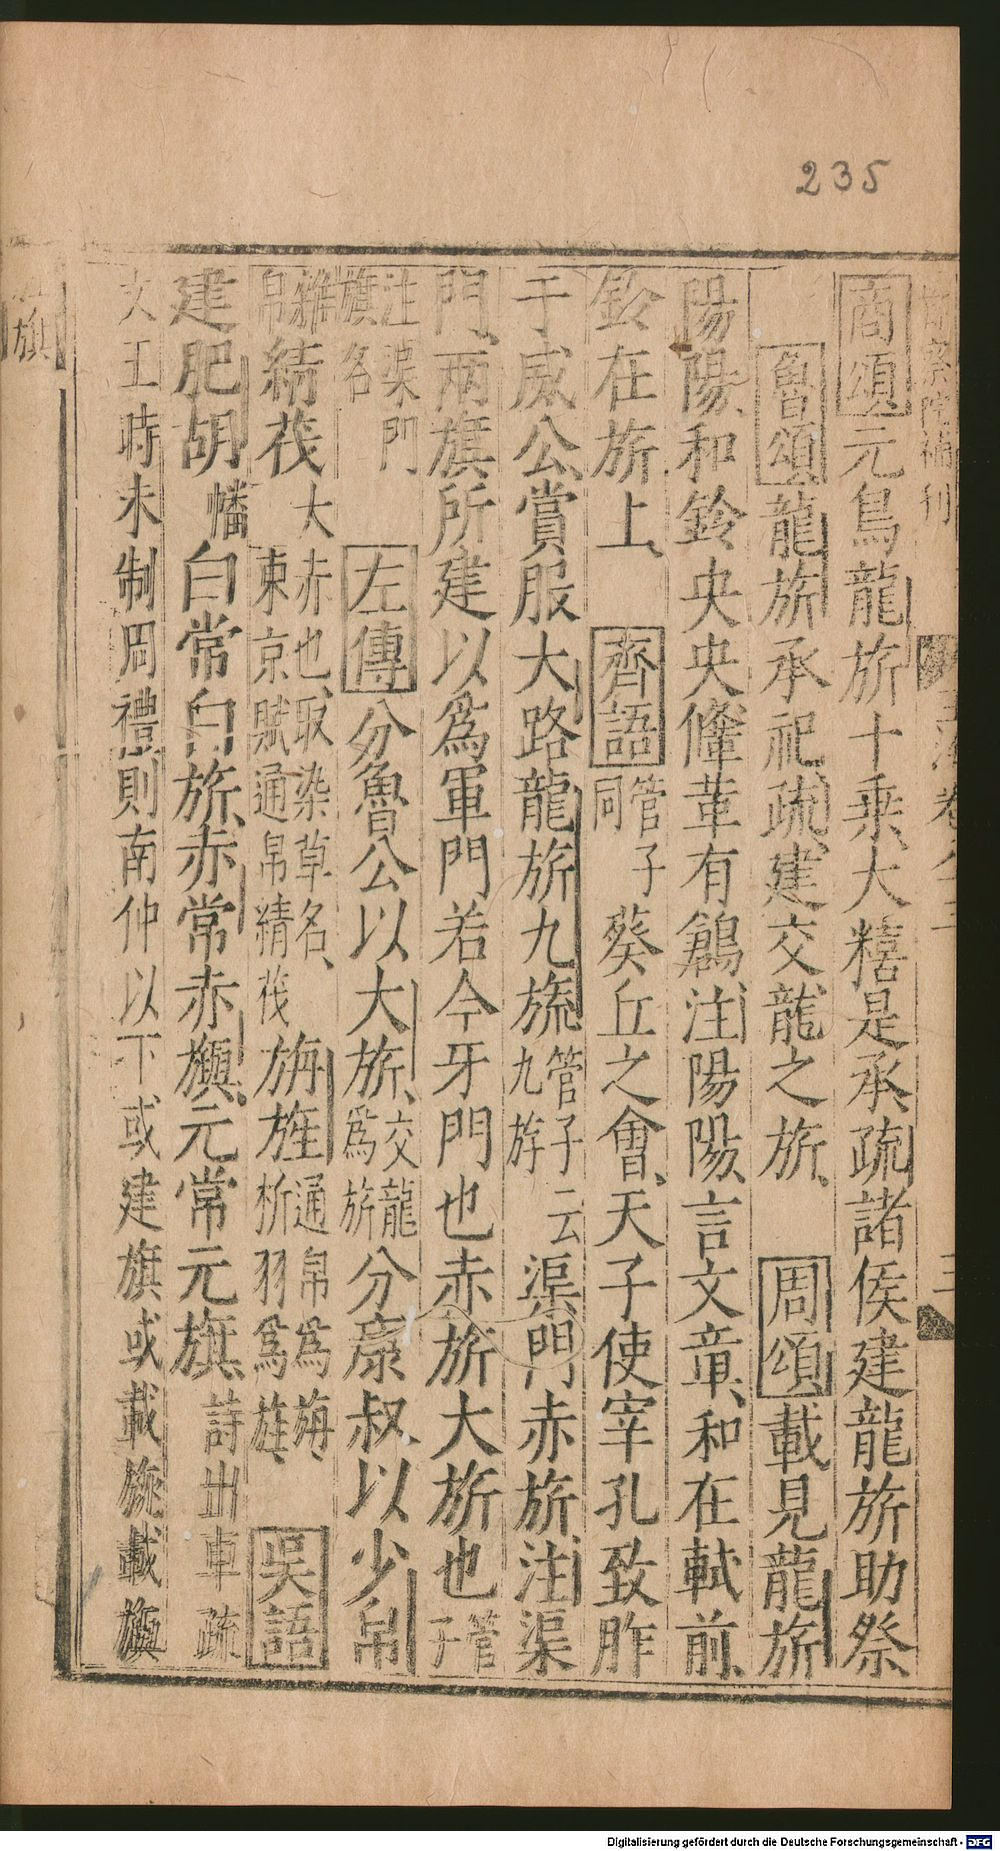 235
商頌元鳥龍旂十乘大糦是承疏諸侯建龍旂助祭
魯頌龍旂承祀疏建交龍之旂周頌載見龍旂
陽陽和鈴央央鞗革有鶬注陽陽言文章和在軾前
鈴在旂上齊語管子同葵丘之會天子使宰孔致胙
于威公賞服大路龍旂九旒管子云九斿渠門赤旂注渠
門兩旗所建以為軍門若今牙門也赤旂大旂也管子
注渠門旗名左傳分魯公以大旂交龍為旂分康叔以少帛
雜帛綪茷大赤也取染草名東京賦通帛綪茷旃旌通帛為旃析羽為旌吳語
建肥胡幡白常白旂赤常赤旟元常元旗詩出車疏
文王時未制周禮則南仲以下或建旗或載旐載旟
旗
Digitalisierung gefördert durch die Deutsche Forschungsgemeinschaft - DFG